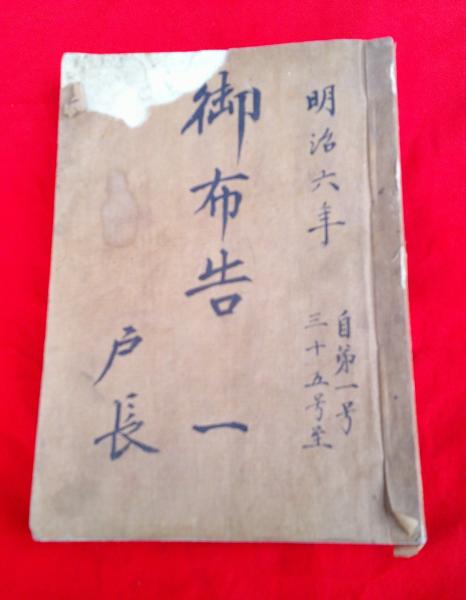 明治六年
自第一号
三十五号至
御布告 一
戸長